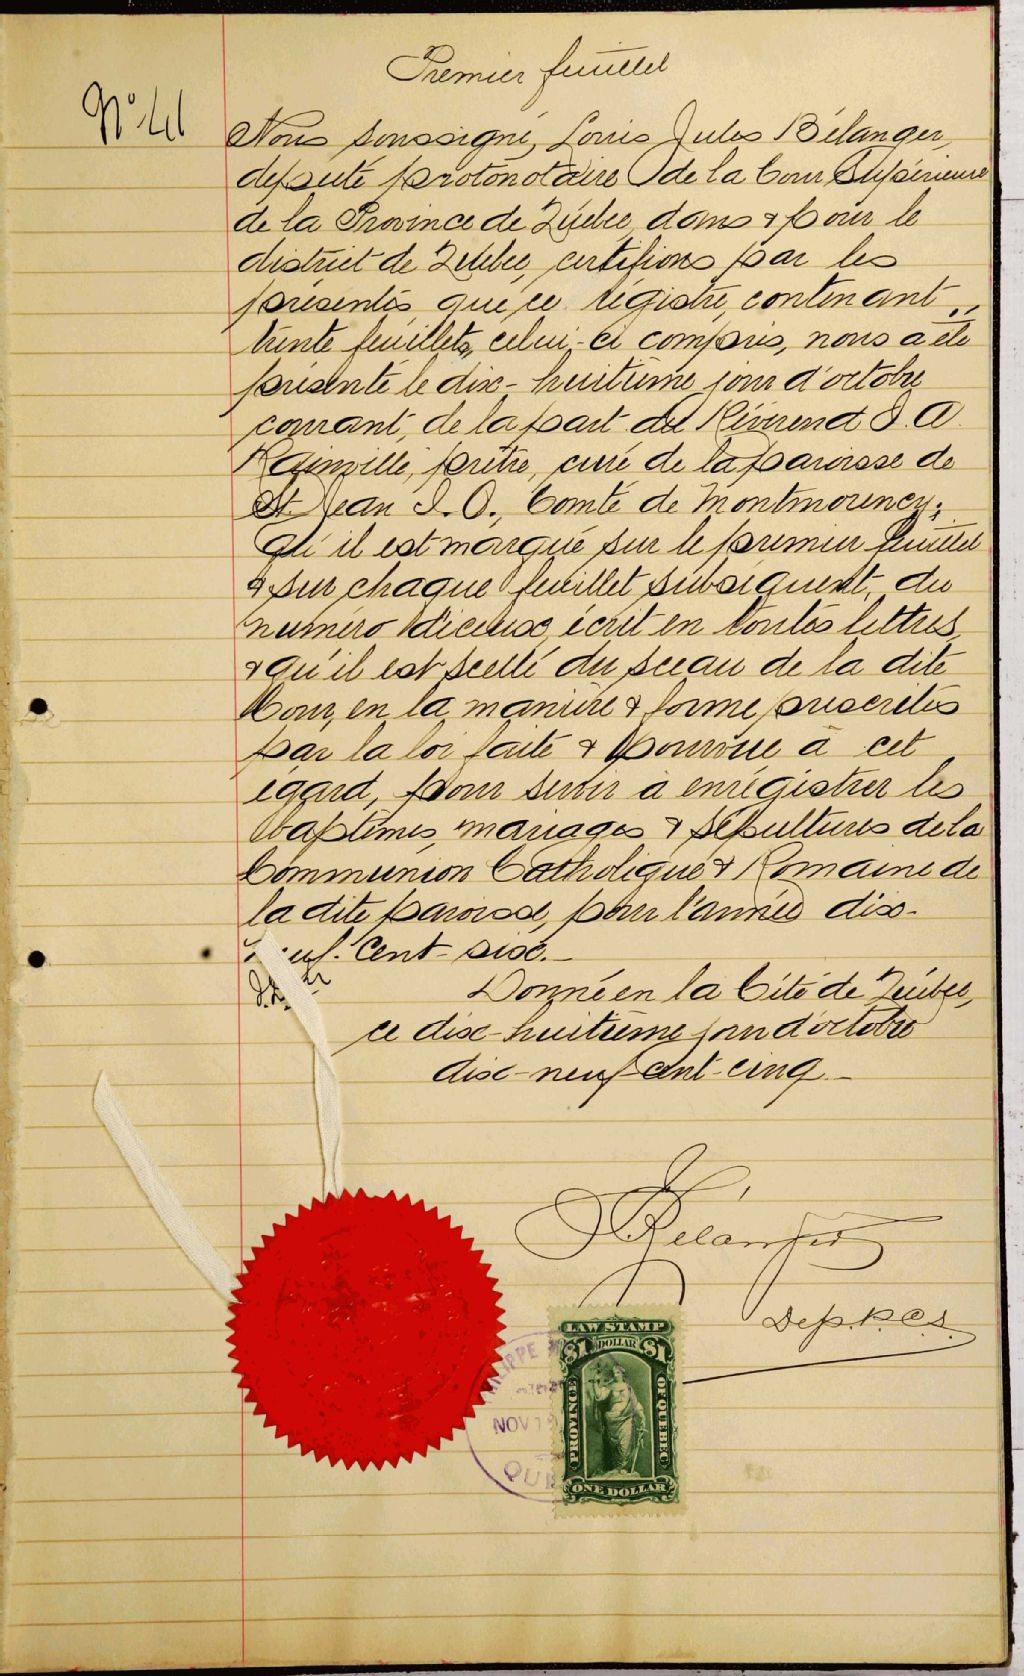 Premier feuillet
No. 41
Nous soussigné, Louis Jules Bélanger,
député protonotaire de la Cour Supérieure
de la Province de Québec, dans & pour le
district de Québec, certifions par les
présentes que ce régistre, contenant
trente feuillets, celui-ci compris, nous a été
présenté le dix-huitième jour d'octobre
courant, de la part du Révérend J. A.
Rainville, prêtre, curé de la paroisse de
St Jean I. O., Comté de Montmorency;
qu'il est marqué sur le premier feuillet
& sur chaque feuillet subséquent, du
numéro d'iceux, écrit en toutes lettres,
& qu'il est scellé du sceau de la dite
Cour, en la manière & forme prescrites
par la loi faite & pourvue à cet
égard, pour servir à enrégistrer les
baptêmes, mariages & sépultures de la
Communion Catholique & Romaine de
la dite paroisse, pour l'année dix-
neuf-cent-six.
Donné en la Cité de Québec,
ce dix-huitième jour d'octobre
dix-neuf-cent-cinq.
Bélanger
Dep. P.C.S.
LAW STAMP
$1 DOLLAR $1
PROVINCE OF QUEBEC
ONE DOLLAR
NOV
QUE